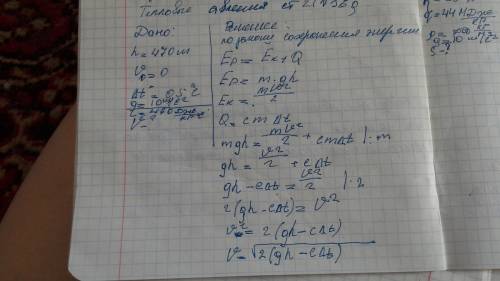 Тепловые явления
Дано:
h = 470 м
v₀ = 0
Δt = 0,5°C
g = 10 м/с²
v -
Решение:
по закону сохранения энергии
Eₚ = Eₖ + Q
Eₚ = m·gh
Eₖ = mv²/2
Q = cmΔt
mgh = mv²/2 + cmΔt |: m
gh = v²/2 + cΔt
gh - cΔt = v²/2 |·2
2(gh - cΔt) = v²
v² = 2(gh - cΔt)
v = √2(gh - cΔt)